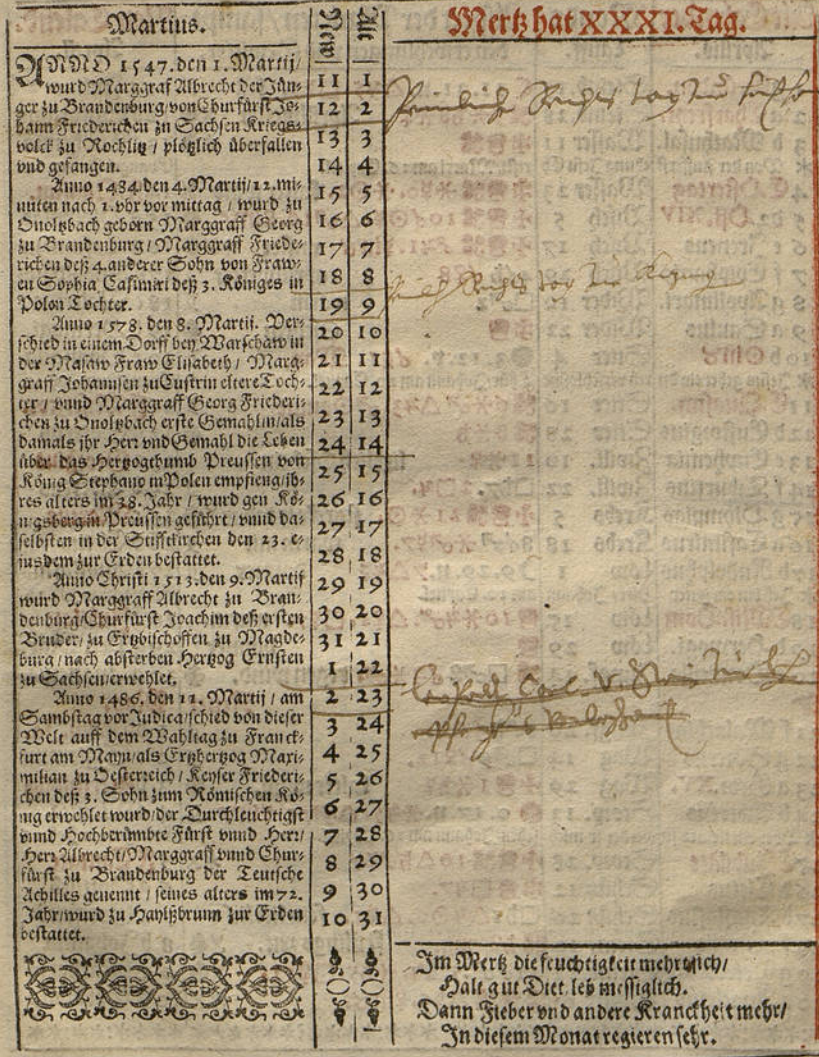 Martius.
New
Alt
Mertz hat XXXI. Tag.
ANNO 1547. den 1. Martij/
wurd Marggraf Albrecht der Jün-
ger zu Brandenburg/ von Churfürst Jo-
hann Friederichen zu Sachsen Kriegs-
volck zu Rochlitz / plötzlich überfallen
vnd gefangen.
Anno 1484. den 4. Martij/ 12. mi-
nuten nach 1. vhr vor mittag / wurd zu
Onoltzbach geborn Marggraff Georg
zu Brandenburg / Marggraff Friede-
richen deß 4. anderer Sohn von Fraw-
en Sophia Casimiri deß 3. Königes in
Polen Tochter.
Anno 1578. den 8. Martii. Ver-
schied in einem Dorff bey Warschaw in
der Masaw Fraw Elisabeth / Marg-
graff Johannsen zu Custrin eltere Toch-
ter / vnnd Marggraff Georg Friederi-
chen zu Onoltzbach erste Gemahlin/ als
damals jhr Herr vnd Gemahl die Lehen
über das Hertzogthumb Preussen von
König Stephano in Polen empfieng/ ih-
res alters im 38. Jahr / wurd gen Kö-
nigsberg in Preussen geführt / vnnd da-
selbsten in der Stifftkirchen den 23. e-
iusdem zur Erden bestattet.
Anno Christi 1513. den 9. Martij
wurd Marggraff Albrecht zu Bran-
denburg/ Churfürst Joachim deß ersten
Bruder/ zu Ertzbischoffen zu Magde-
burg / nach absterben Hertzog Ernsten
zu Sachsen/ erwehlet.
Anno 1486. den 11. Martij / am
Sambstag vor Judica/ schied von dieser
Welt auff dem Wahltag zu Franck-
furt am Mayn/ als Ertzhertzog Maxi-
milian zu Oesterreich / Keyser Friederi-
chen deß 3. Sohn zum Römischen Kö-
nig erwehlet wurd/ der Durchleuchtigst
vnnd Hochberümbte Fürst vnnd Herr/
Herr Albrecht/ Marggraff vnnd Chur-
fürst zu Brandenburg der Teutsche
Achilles genennt / seines alters im 72.
Jahr/ wurd zu Haylßbrunn zur Erden
bestattet.
11 1
12 2
13 3
14 4
15 5
16 6
17 7
18 8
19 9
20 10
21 11
22 12
23 13
24 14
25 15
26 16
27 17
28 18
29 19
30 20
31 21
1 22
2 23
3 24
4 25
5 26
6 27
7 28
8 29
9 30
10 31
Im Mertz die feuchtigkeit mehrt sich/
Halt gut Diet leb messiglich.
Dann Fieber vnd andere Kranckheit mehr/
In diesem Monat regieren sehr.